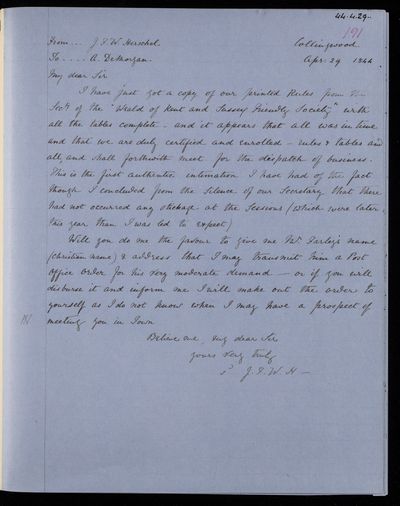 44.4.29.
191
From... J.F.W. Herschel. Collingwood
To.... A. DeMorgan. Apr. 29 1844
My dear Sir
I have just got a copy of our printed Rules from the
Secy of the "Weald of Kent and Sussex Friendly Society" with
all the tables complete - and it appears that all was in time
and that we are duly certified and enrolled - rules & tables and
all, and shall forthwith meet for the dispatch of business.
This is the first authentic intimation I have had of the fact
though I concluded from the silence of our Secretary that there
had not occurred any stickage at the Sessions (which were later
this year than I was led to expect)
Will you do me the favour to give me Mr. Farley's name
(christian name) & address that I may transmit him a Post
Office order for his very moderate demand - or if you will
disburse it and inform me I will make out the order to
yourself as I do not know when I may have a prospect of
meeting you in Town
Believe me, my dear Sir
yours very truly
J.F.W.H -